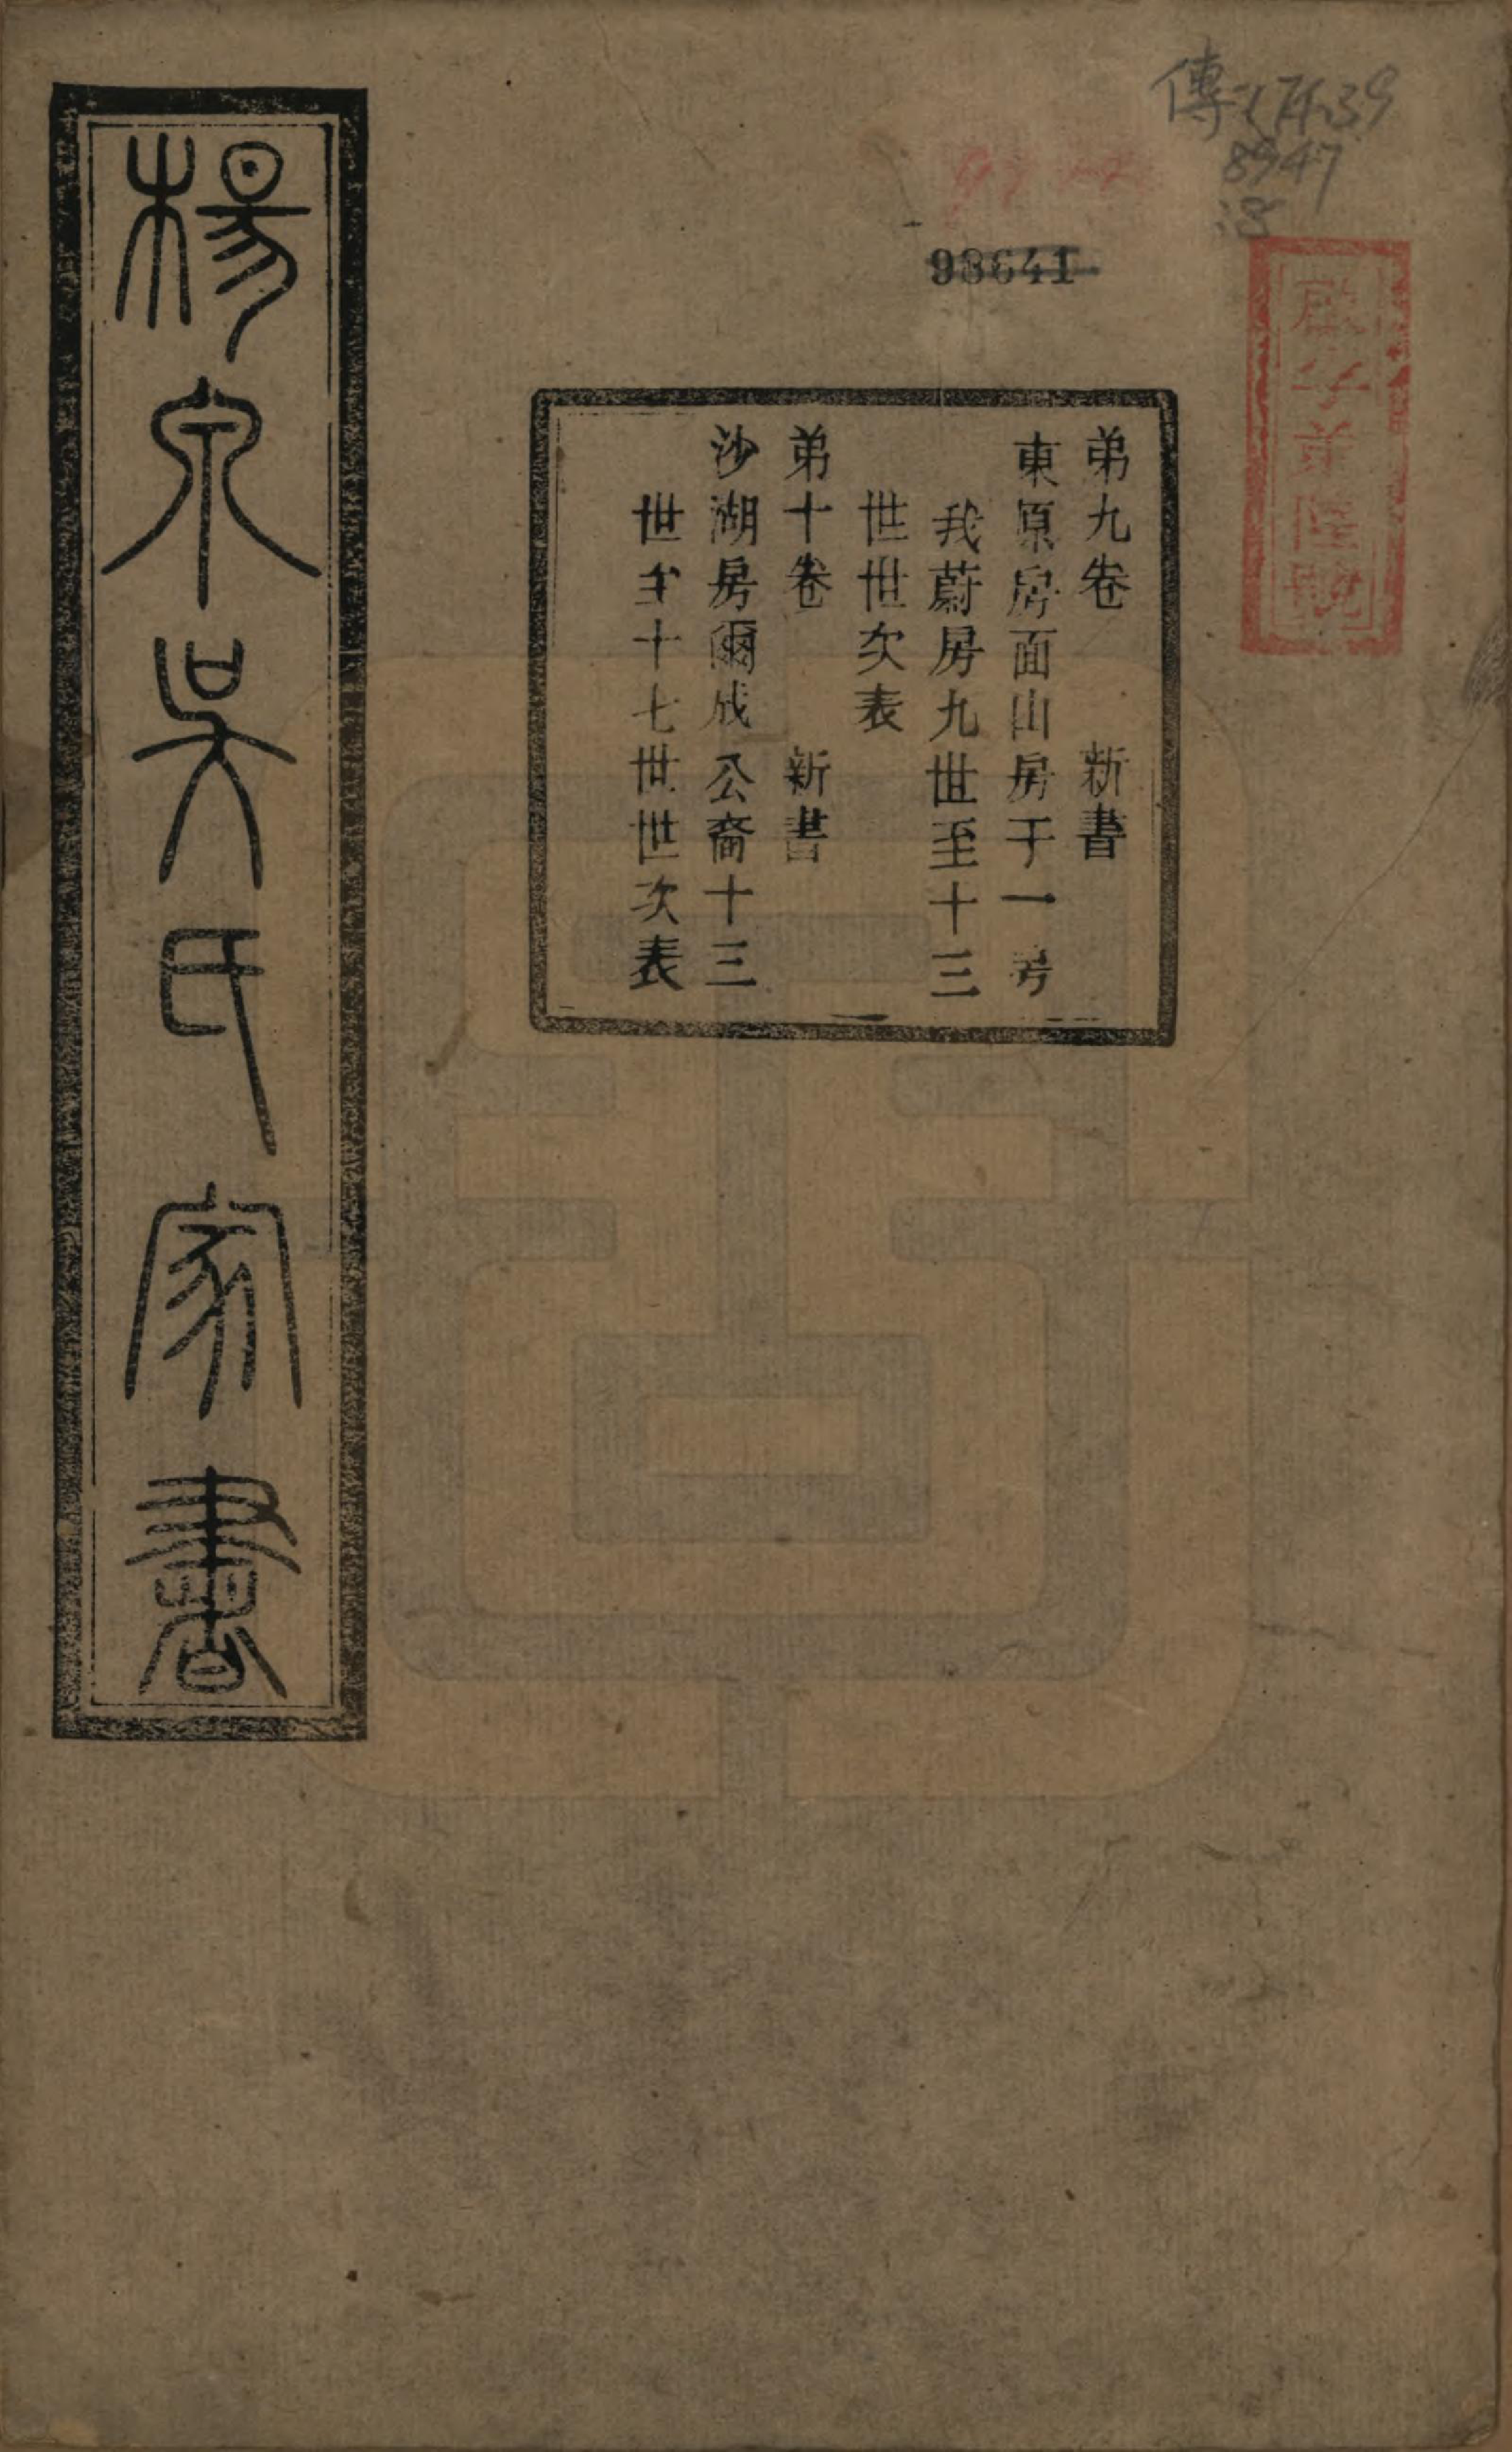 傳
8947
:8
93641
弟九卷　新書
東原房面山房于一
我蔚房九世至十三
世世次表
弟十卷　新書
沙湖房爾成公裔十三
世至十七世世次表
楊泉吳氏家書